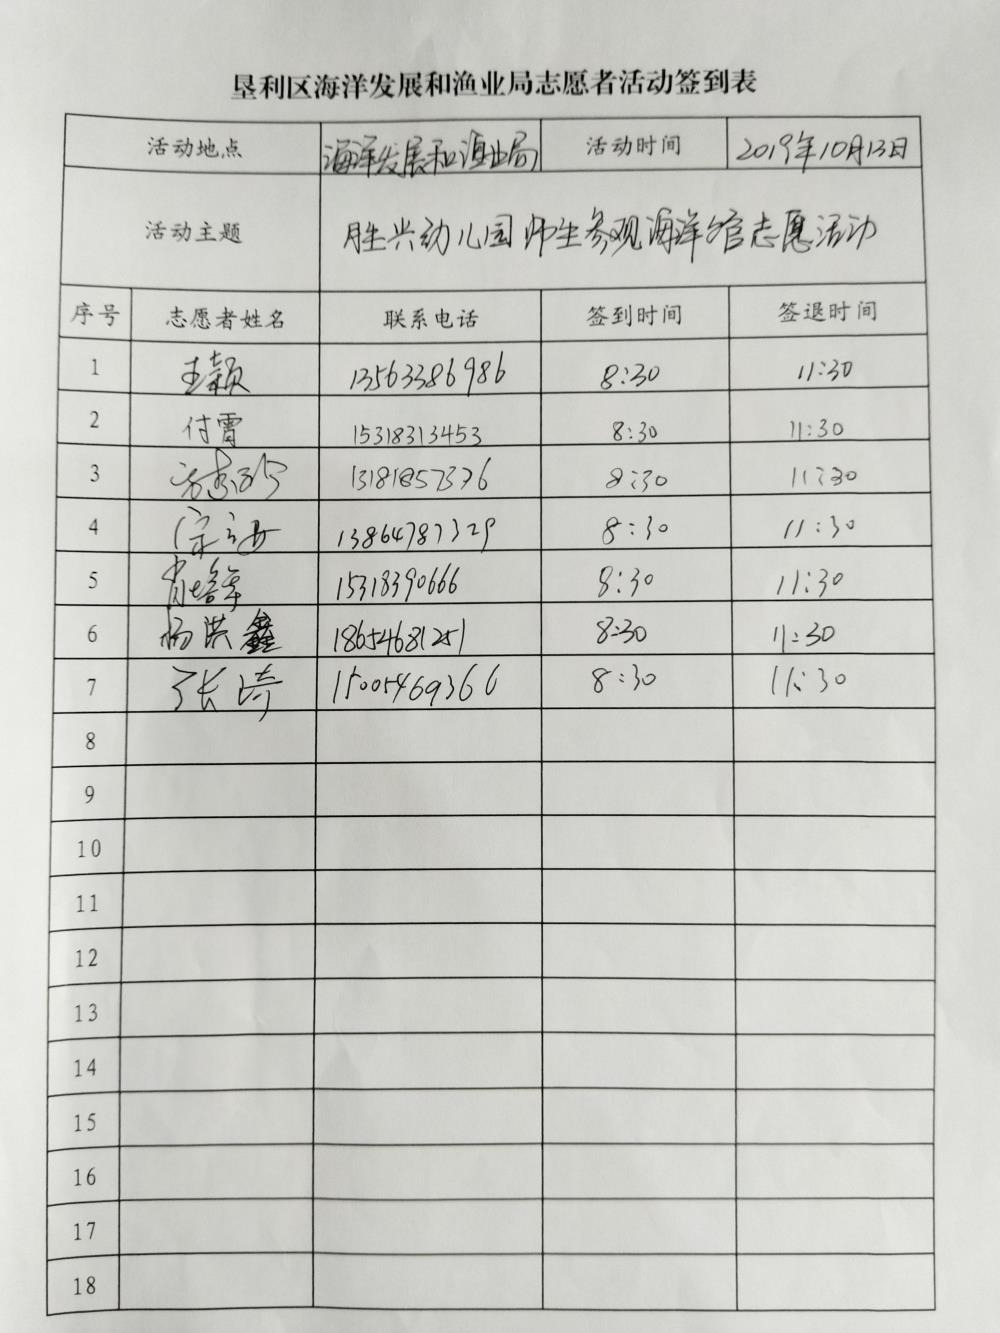 垦利区海洋发展和渔业局志愿者活动签到表
活动地点 海洋发展和渔业局 活动时间 2019年10月13日
活动主题 胜兴幼儿园师生参观海洋馆志愿活动
序号 志愿者姓名 联系电话 签到时间 签退时间
1 王颖 13563386986 8:30 11:30
2 付霄 15318313453 8:30 11:30
3 13181857376 8:30 11:30
4 宋海 13864787329 8:30 11:30
5 肖培军 15318390666 8:30 11:30
6 杨洪鑫 18654681251 8:30 11:30
7 张琦 15005469366 8:30 11:30
8
9
10
11
12
13
14
15
16
17
18